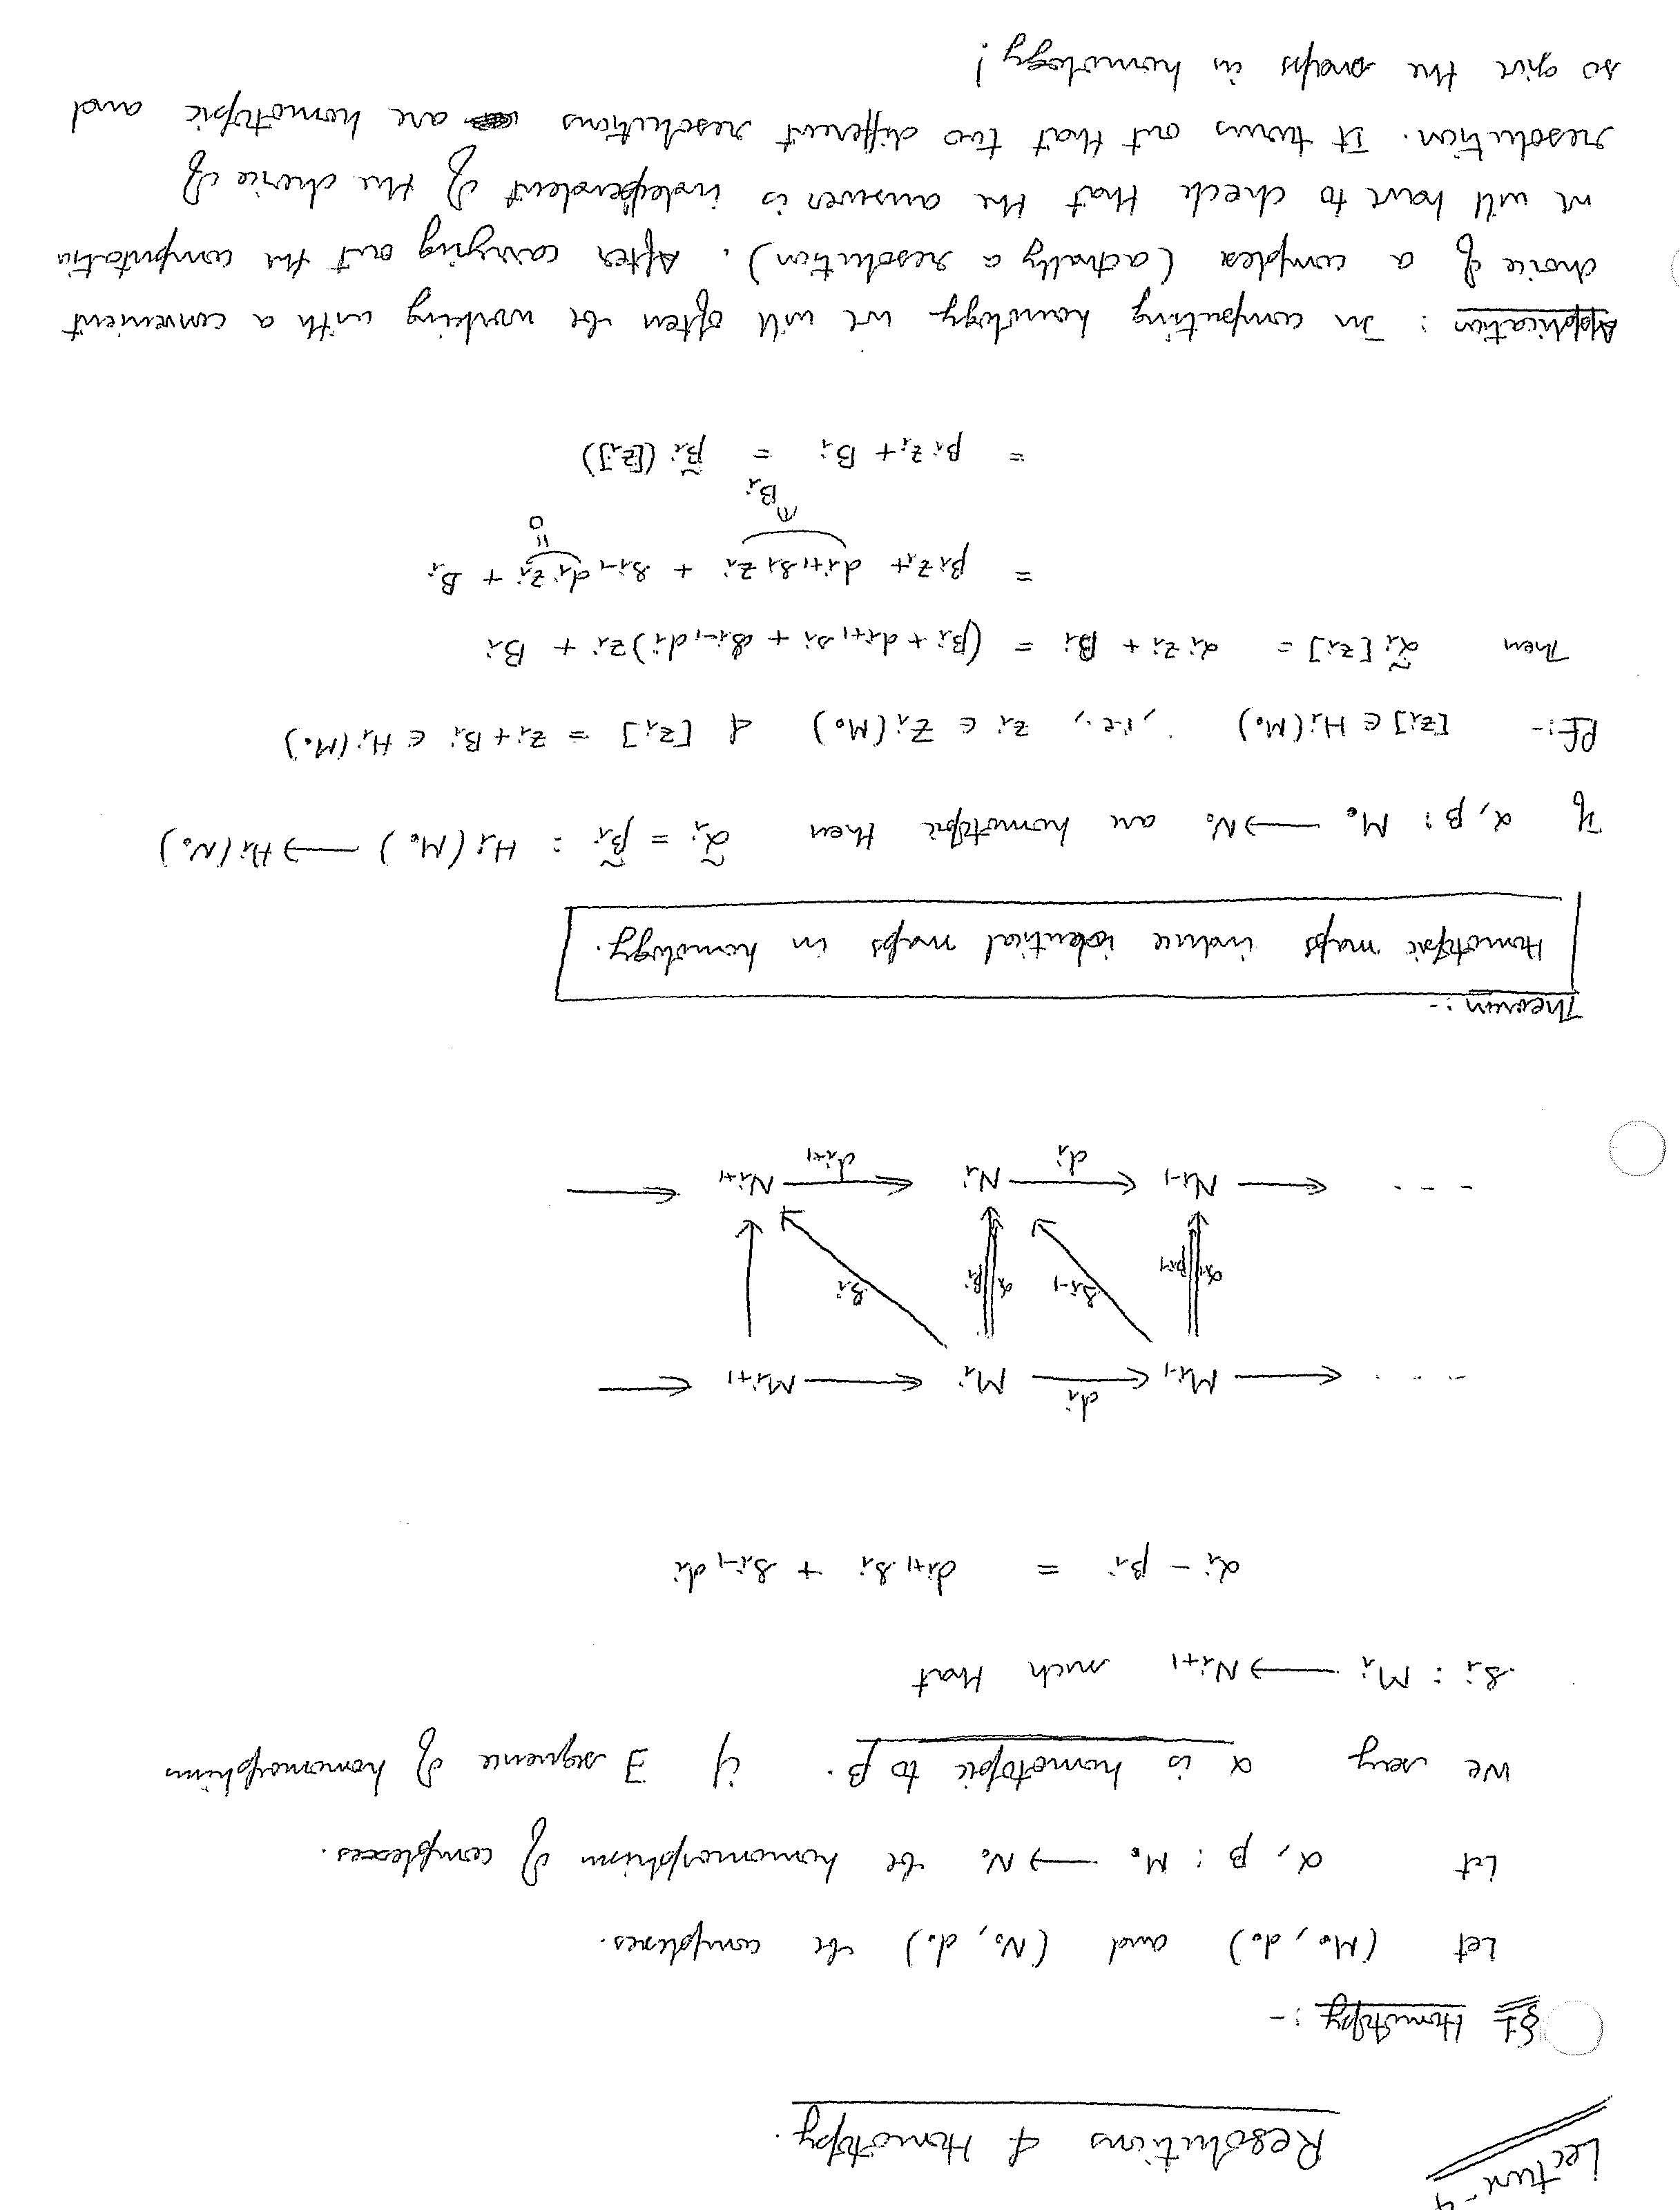 Lecture-4
Resolutions & Homotopy.
§1 Homotopy :-
Let (M., d.) and (N., d.) be complexes.
Let α, β : M. → N. be homomorphism of complexes.
We say α is homotopic to β. if ∃ sequence of homomorphisms
si : Mi → Ni+1 such that
αi - βi = di+1 si + si-1 di
... ← Mi-1 ← di Mi ← Mi+1 ←
αi-1 βi-1 si-1 αi βi si
--- ← Ni-1 ← di Ni ← di+1 Ni+1 ←
Theorem :-
Homotopic maps induce identical maps in homology.
If α, β : M. → N. are homotopic then α̃i = β̃i : Hi(M.) → Hi(N.)
Pf:- [zi] ∈ Hi(M.) , i.e., zi ∈ Zi(M.) & [zi] = zi + Bi ∈ Hi(M.)
Then α̃i [zi] = αi zi + Bi = (βi + di+1 si + si-1 di) zi + Bi
= βi zi + di+1 si zi + si-1 di zi + Bi
∈ Bi = 0
= βi zi + Bi = β̃i ([zi])
Application : In computing homology we will often be working with a convenient
choice of a complex (actually a resolution). After carrying out the computation
we will have to check that the answer is independent of the choice of
resolution. It turns out that two different resolutions are homotopic and
so give the maps in homology!